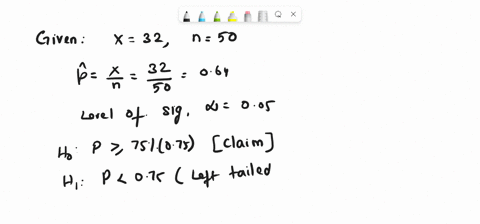 Given: x = 32, n = 50
p̂ = x/n = 32/50 = 0.64
Level of sig, α = 0.05
H₀: P ≥ 75% (0.75) [Claim]
H₁: P < 0.75 (Left tailed